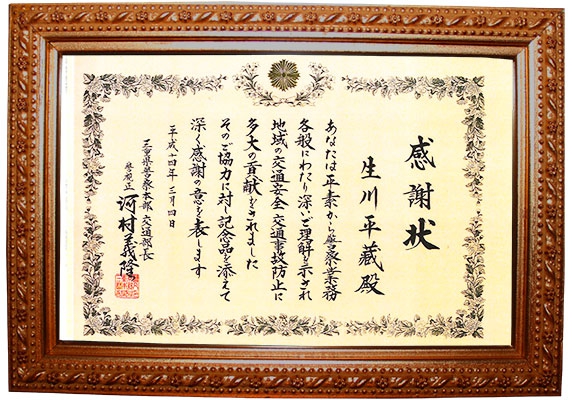 感謝状
生川平藏殿
あなたは平素から警察業務
各般にわたり深いご理解を示され
地域の交通安全交通事故防止に
多大の貢献をされました
そのご協力に対し記念品を添えて
深く感謝の意を表します
平成十四年三月四日
三重県警察本部交通部長
警視正 河村美隆